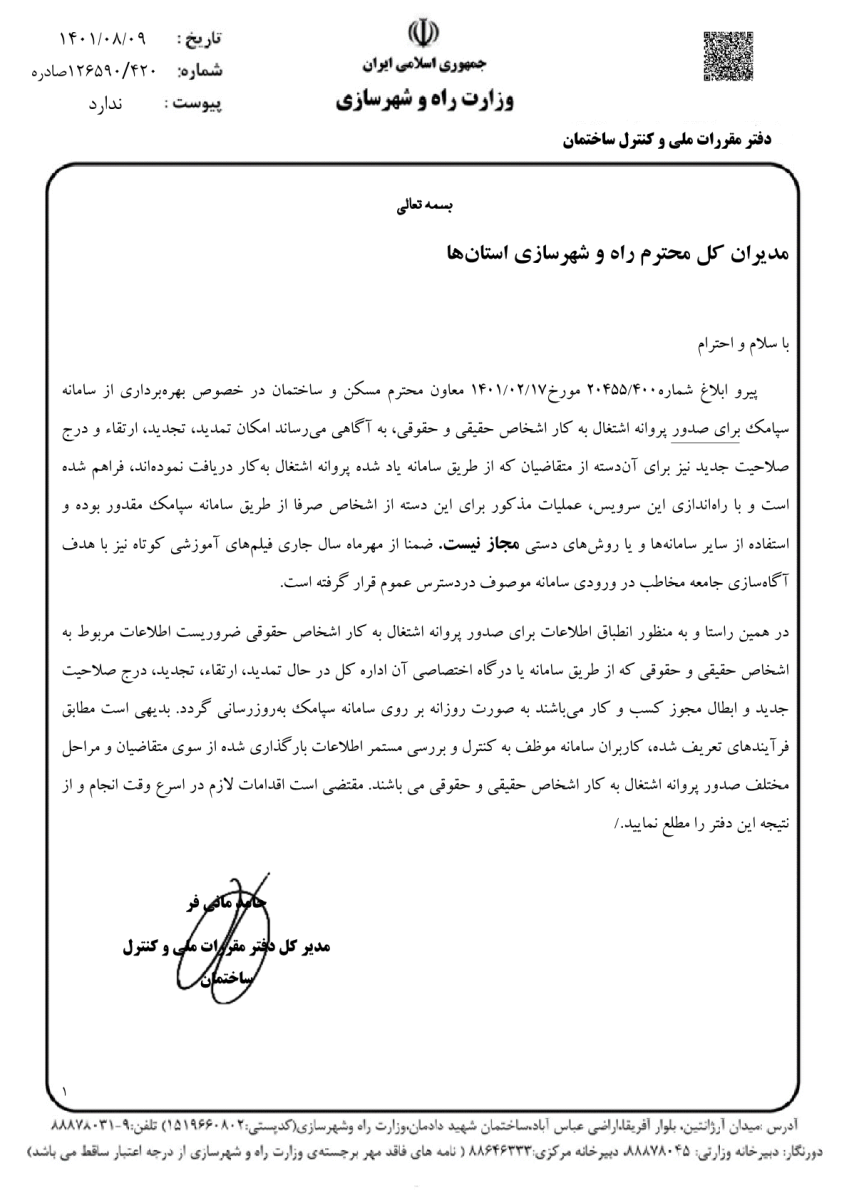 تاریخ : ۱۴۰۱/۰۸/۰۹
شماره: ۱۲۶۵۹۰/۴۲۰صادره
پیوست : ندارد
جمهوری اسلامی ایران
وزارت راه و شهرسازی
دفتر مقررات ملی و کنترل ساختمان
بسمه تعالی
مدیران کل محترم راه و شهرسازی استان‌ها
با سلام و احترام
پیرو ابلاغ شماره۲۰۴۵۵/۴۰۰ مورخ۱۴۰۱/۰۲/۱۷ معاون محترم مسکن و ساختمان در خصوص بهره‌برداری از سامانه
سپامک برای صدور پروانه اشتغال به کار اشخاص حقیقی و حقوقی، به آگاهی می‌رساند امکان تمدید، تجدید، ارتقاء و درج
صلاحیت جدید نیز برای آن‌دسته از متقاضیان که از طریق سامانه یاد شده پروانه اشتغال به‌کار دریافت نموده‌اند، فراهم شده
است و با راه‌اندازی این سرویس، عملیات مذکور برای این دسته از اشخاص صرفا از طریق سامانه سپامک مقدور بوده و
استفاده از سایر سامانه‌ها و یا روش‌های دستی مجاز نیست. ضمنا از مهرماه سال جاری فیلم‌های آموزشی کوتاه نیز با هدف
آگاه‌سازی جامعه مخاطب در ورودی سامانه موصوف دردسترس عموم قرار گرفته است.
در همین راستا و به منظور انطباق اطلاعات برای صدور پروانه اشتغال به کار اشخاص حقوقی ضروریست اطلاعات مربوط به
اشخاص حقیقی و حقوقی که از طریق سامانه یا درگاه اختصاصی آن اداره کل در حال تمدید، ارتقاء، تجدید، درج صلاحیت
جدید و ابطال مجوز کسب و کار می‌باشند به صورت روزانه بر روی سامانه سپامک به‌روزرسانی گردد. بدیهی است مطابق
فرآیندهای تعریف شده، کاربران سامانه موظف به کنترل و بررسی مستمر اطلاعات بارگذاری شده از سوی متقاضیان و مراحل
مختلف صدور پروانه اشتغال به کار اشخاص حقیقی و حقوقی می باشند. مقتضی است اقدامات لازم در اسرع وقت انجام و از
نتیجه این دفتر را مطلع نمایید./
حامد مانی فر
مدیر کل دفتر مقررات ملی و کنترل
ساختمان
۱
آدرس :میدان آرژانتین، بلوار آفریقا،اراضی عباس آباد،ساختمان شهید دادمان،وزارت راه وشهرسازی(کدپستی:۱۵۱۹۶۶۰۸۰۲) تلفن:۹-۸۸۸۷۸۰۳۱
دورنگار: دبیرخانه وزارتی: ۸۸۸۷۸۰۴۵، دبیرخانه مرکزی:۸۸۶۴۶۳۳۳ ( نامه های فاقد مهر برجسته‌ی وزارت راه و شهرسازی از درجه اعتبار ساقط می باشد)